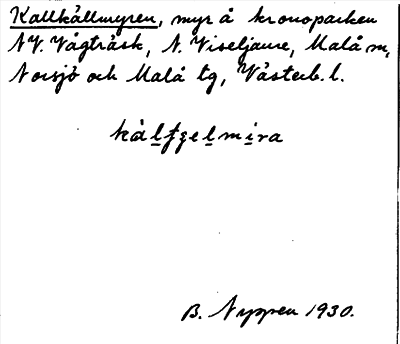 Kallkällmyren, myr å kronoparken
NV. Vågträsk, N. Viseljaure, Malå m,
Norsjö och Malå tg, Västerb. l.
B. Nyppen 1930.